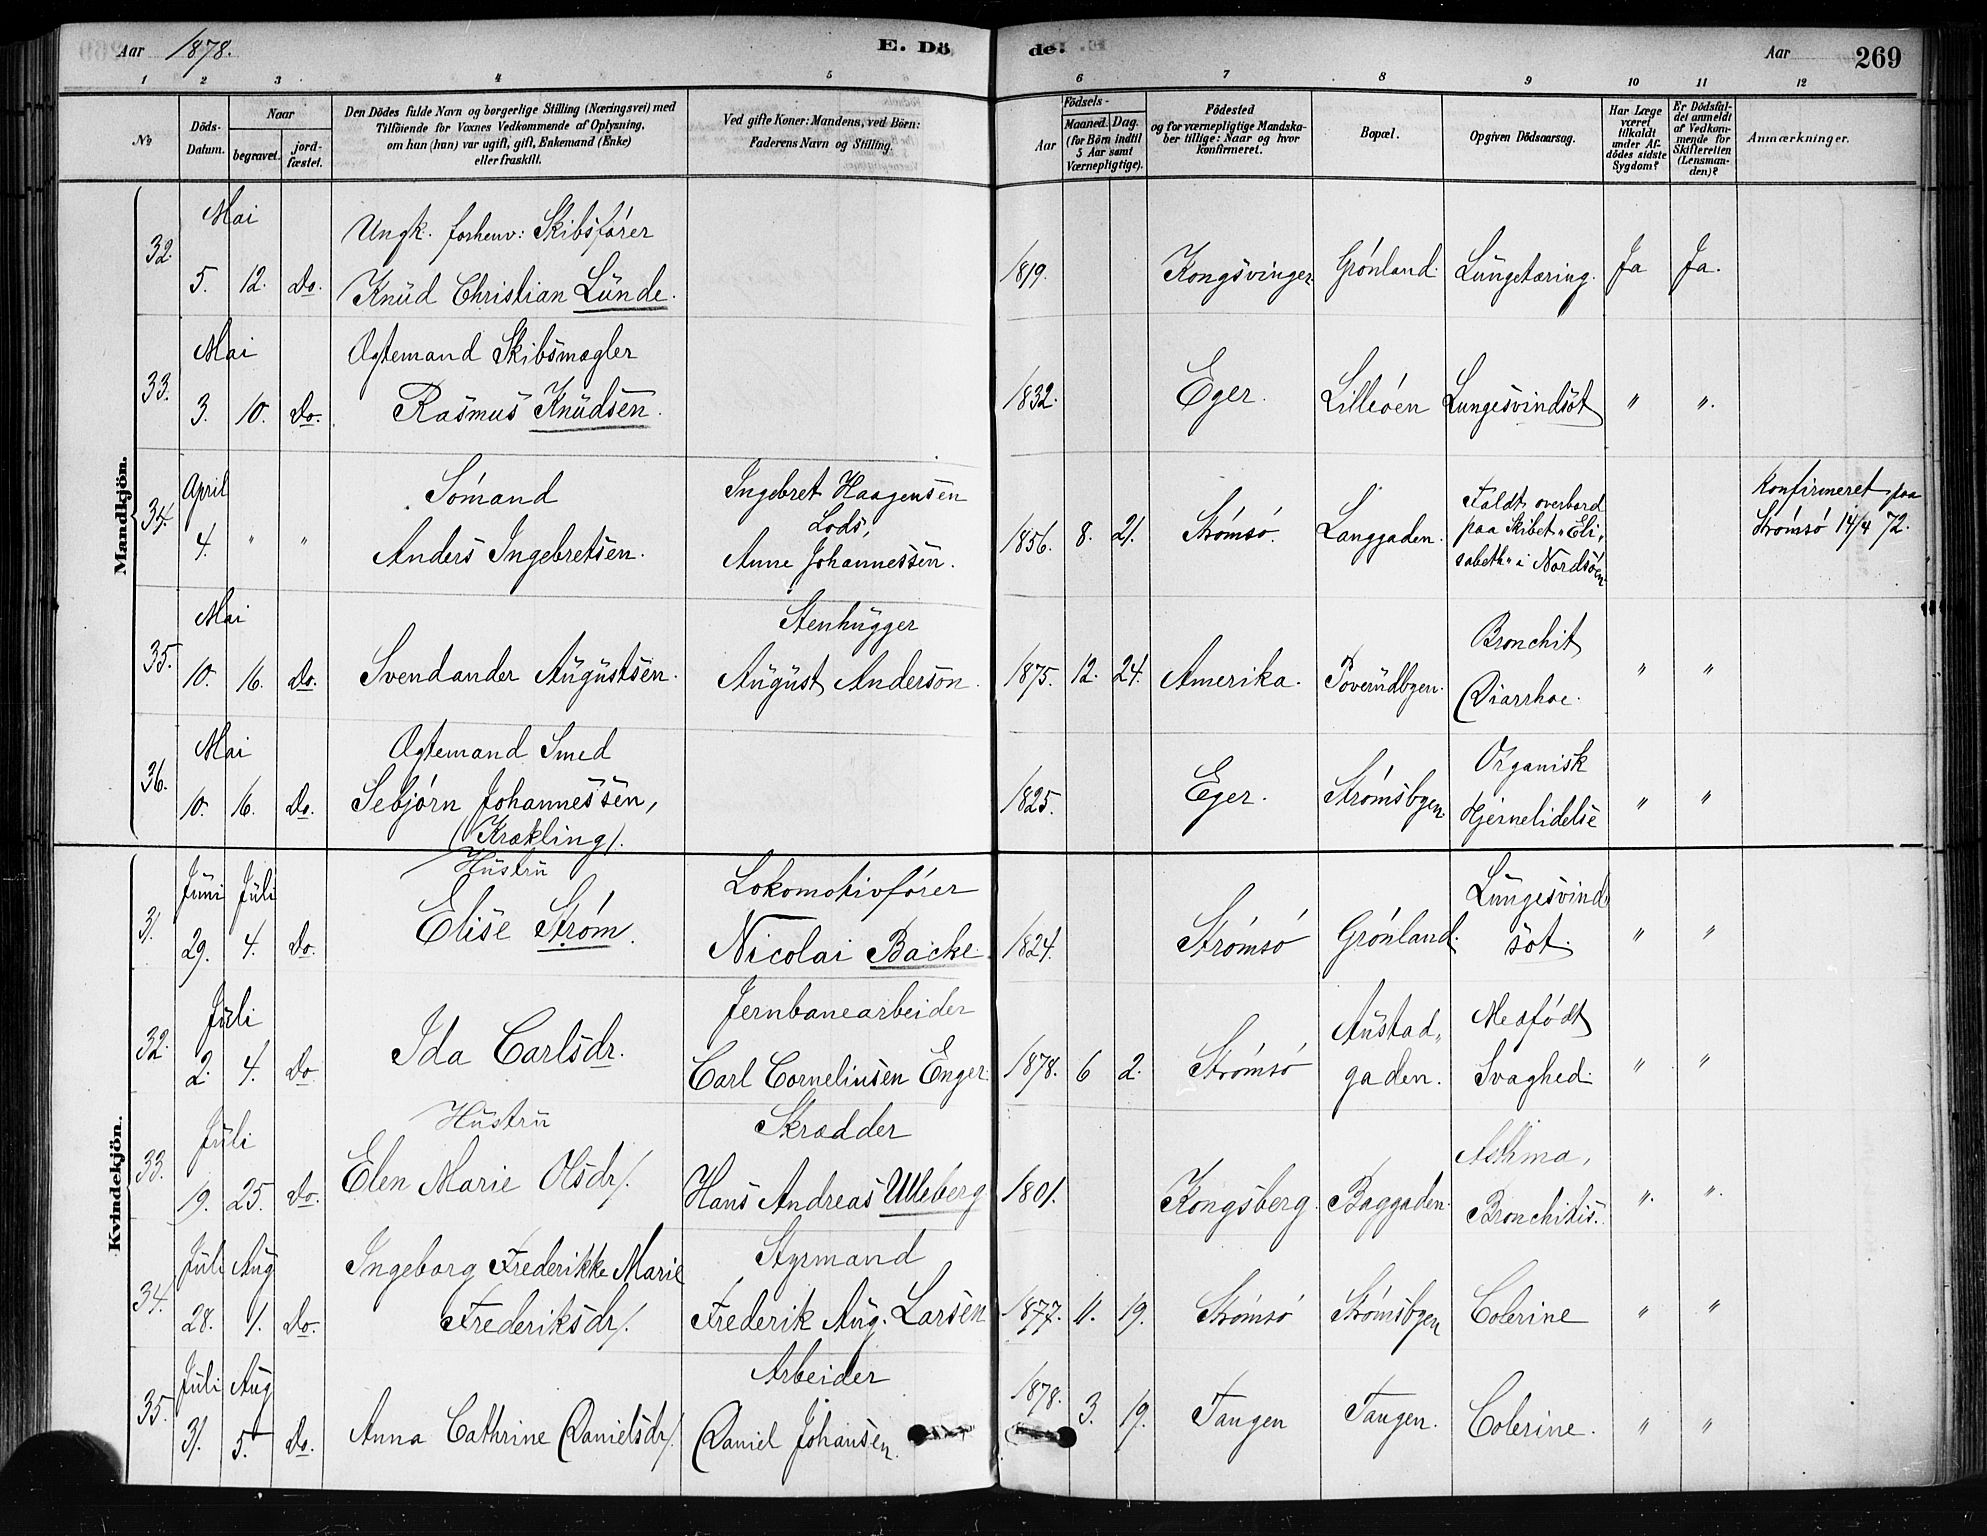 Aar 1878. E. Dö
de. Aar 269
1 2 3 4 5
6 7 8 9 10 11 12
No
Döds-Datum.
Naar
begravet. jordfæstet.
Den Dödes fulde Navn og borgerlige Stilling (Næringsvei) med
Tilföiende for Voxnes Vedkommende af Oplysning,
om han (hun) var ugift, gift, Enkemand (Enke)
eller fraskilt.
Ved gifte Koner: Mandens, ved Börn:
Faderens Navn og Stilling.
Födsels-
Aar Maaned. Dag.
(for Börn indtil
5 Aar samt
Værnepligtige).
Födested
og for værnepligtige Mandska-
ber tillige: Naar og hvor
konfirmeret.
Bopæl.
Opgiven Dödsaarsag.
Har Læge
været
tilkaldt
under Af-
dödes sidste
Sygdom?
Er Dödsfal-
det anmeldt
af Vedkom-
mende for
Skifteretten
(Lensman-
den)?
Anmærkninger.
Mandkjön.
Mai
Ungk. forhenv: Skibsfører
32. 5. 12. Do. Knud Christian Lunde. 1819. Kongsvinger Grønland. Lungetæring. Ja Ja.
Mai
Ægtemand Skibsmægler
33. 3. 10. Do. Rasmus Knudsen. 1832. Eger. Lilleøen Lungesvindsot " ".
April Sømand Ingebret Haagensen Faldt overbord Konfirmeret paa
34. Lods, paa Skibet "Eli- Strømsø 14/4 72.
4. " " Anders Ingebretsen. Anne Johannessen. 1856. 8. 21. Strømsø. Langgaden. sabeth" i Nordsøen
Mai Stenhugger Bronchit
35. 10. 16. Do. Svendander Augustsen. August Anderson. 1875. 12. 24. Amerika. Poverudbyen. Diarrhoe. " "
Mai Ægtemand Smed Organisk
36. 10. 16. Do. Sebjørn Johannessen, 1825. Eger. Strømsbyen Hjernelidelse " "
(Krækling).
Kvindekjön.
Juni Juli Hustru Lokomotivfører Lungesvind-
31. 29. 4. Do. Elise Strøm. Nicolai Backe. 1824. Strømsø Grønland. sot. " "
Juli Jernbanearbeider Austad- Medfødt
32. 2. 4. Do Ida Carlsdr. Carl Corneliusen Enger. 1878. 6 2. Strømsø gaden. Svaghed. " "
Juli Hustru Skrædder Asthma,
33. 19. 25. Do. Elen Marie Olsdr/. Hans Andreas Ulleberg 1801. Kongsberg. Baggaden. Bronchitis. ". ".
Juli Aug Ingeborg Frederikke Marie Styrmand
34. 28. 1. Do. Frederiksdr/. Frederik Aug. Larsen 1877. 11. 19. Strømsø Strømsbyen Colerine " "
Juli Aug Arbeider
35. 31. 5. Do. Anna Cathrine Danielsdr/. Daniel Johansen. 1878. 3. 19. Tangen Tangen. Colerine. " "